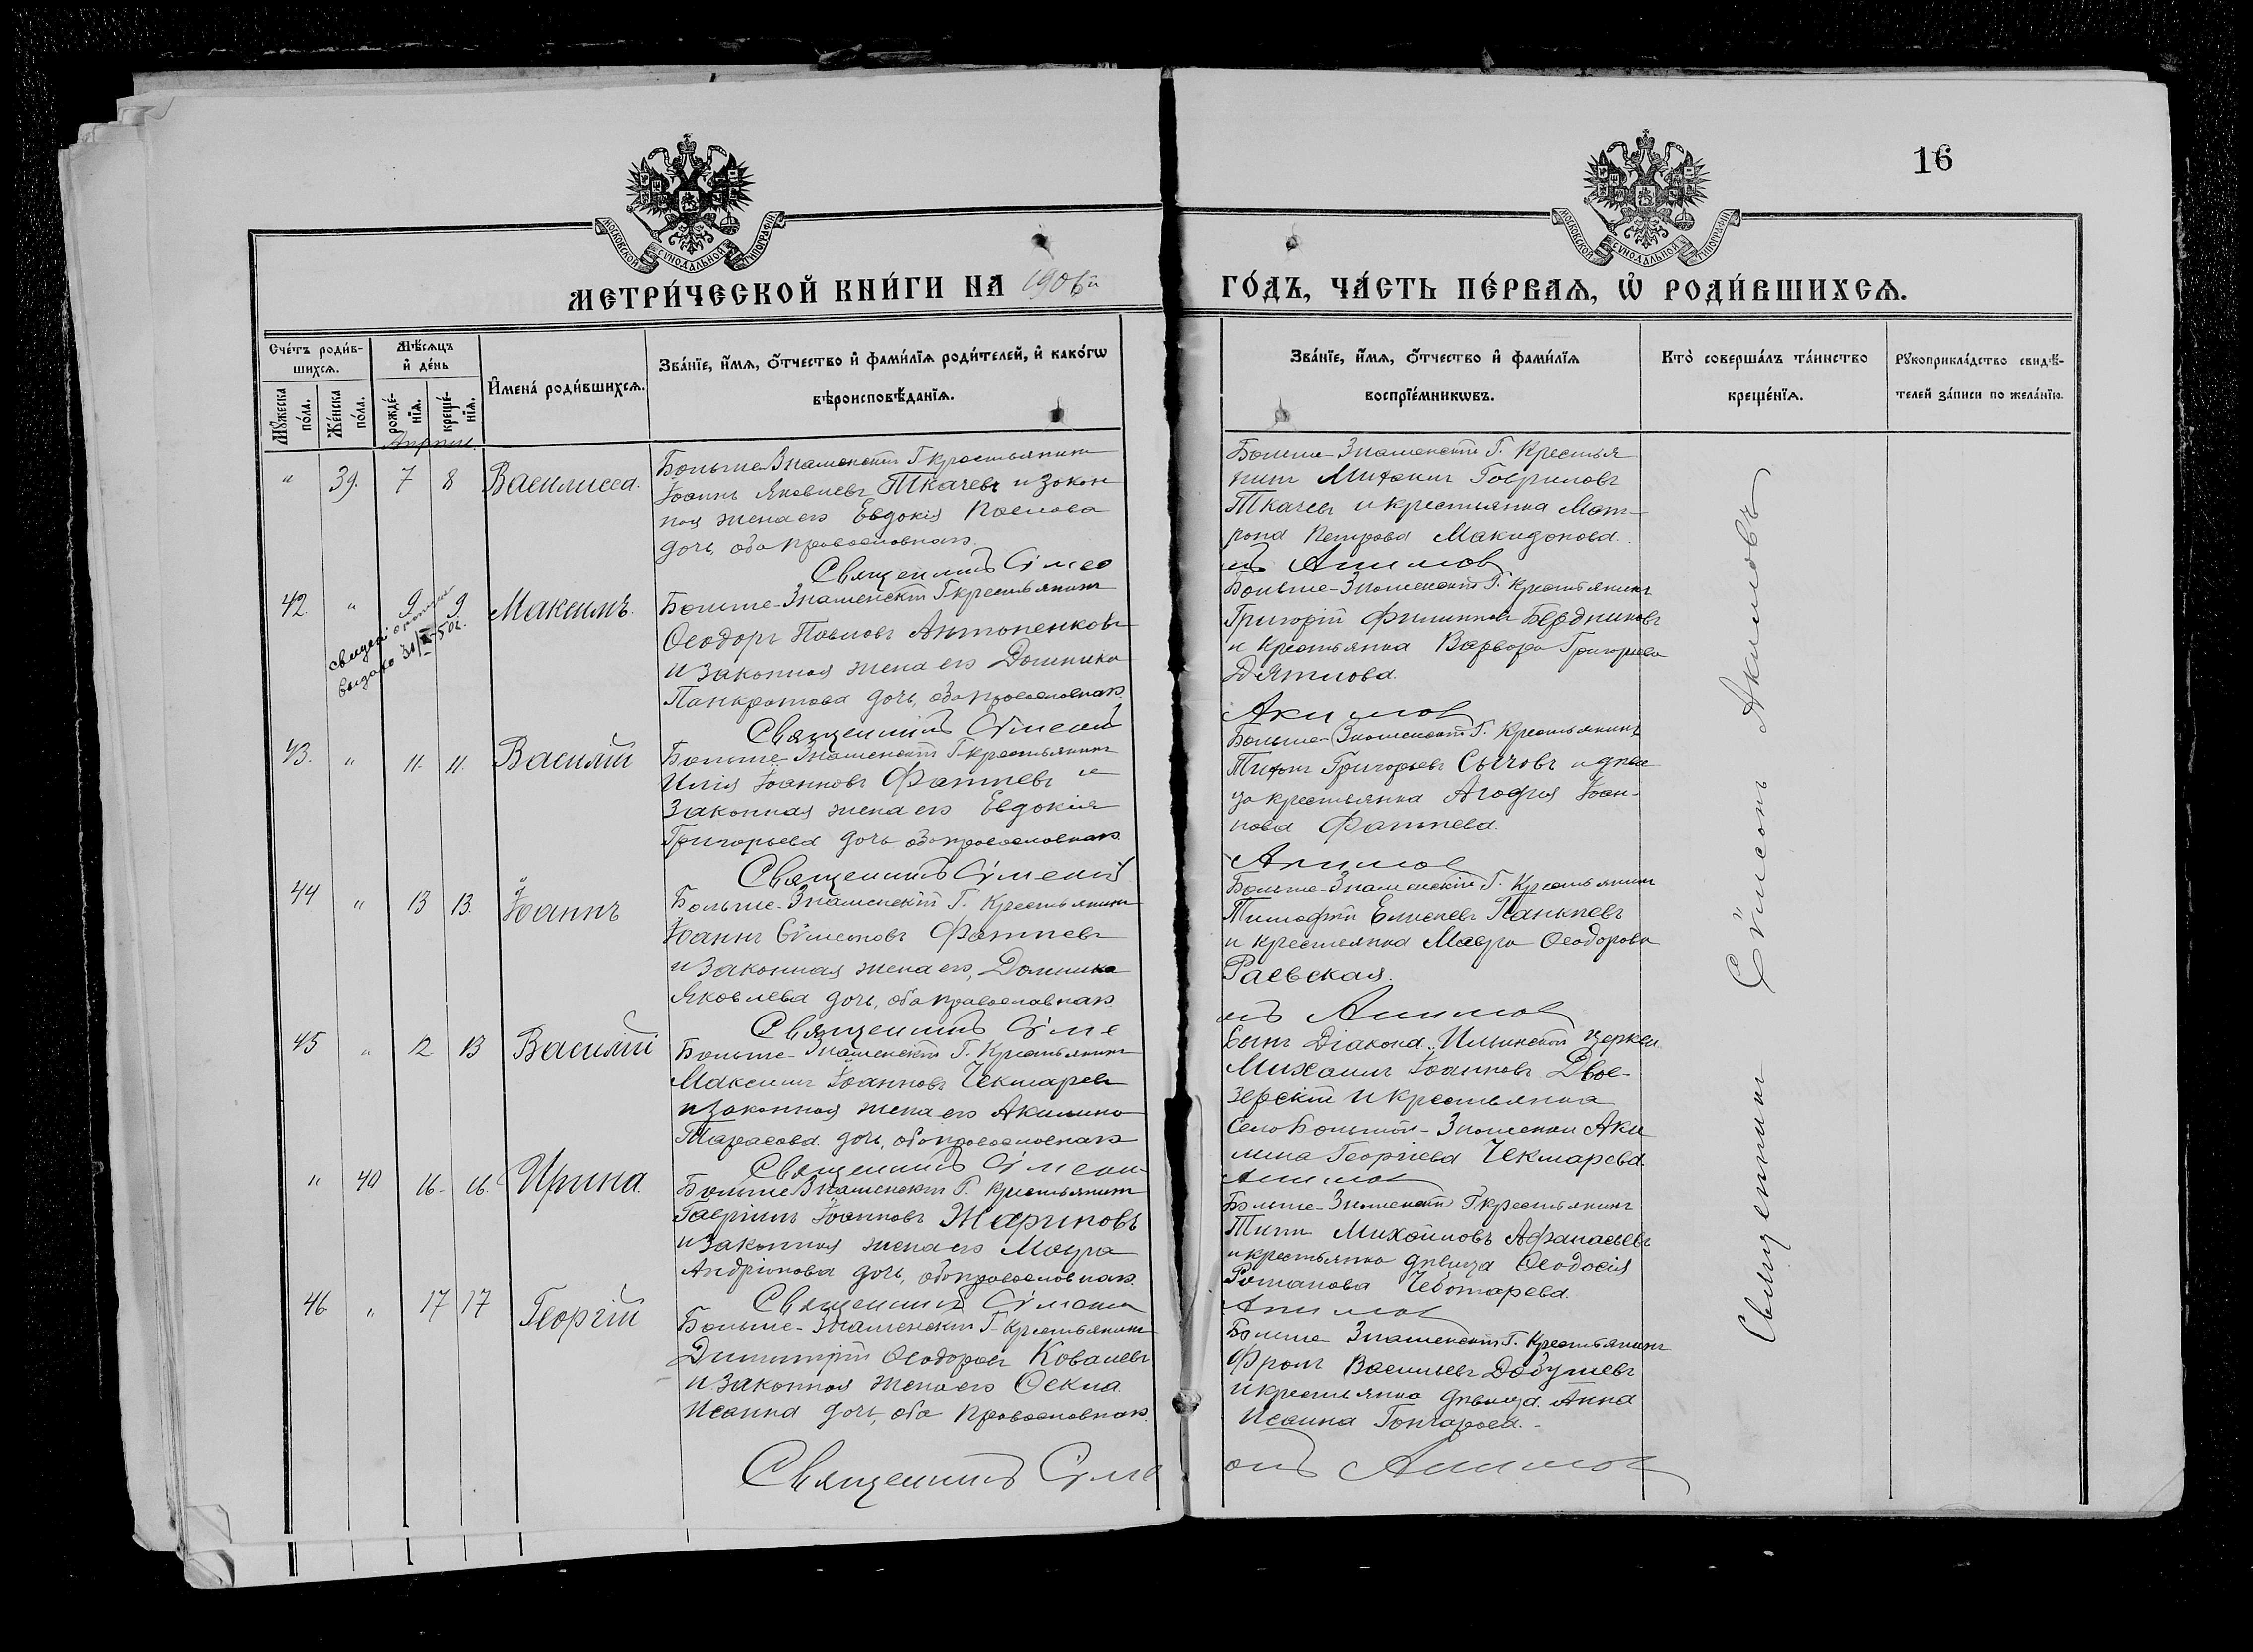 16
МОСКОВСКОЙ СУНОДАЛЬНОЙ ТИПОГРАФІИ
МОСКОВСКОЙ СУНОДАЛЬНОЙ ТИПОГРАФІИ
МЕТРИ́ЧЕСКОЙ КНИ́ГИ НА 1906й ГО́ДЪ, ЧА́СТЬ ПЕ́РВАЯ, Ѽ РОДИ́ВШИХСЯ.
Сче́тъ роди́в-
шихся.
Мꙋ́жеска
по́ла.
Же́нска
по́ла.
Мѣ́сяцъ
и҆ де́нь
рожде́-
нїя.
креще́-
нїя.
И҆мена́ роди́вшихся.
Зва́нїе, и҆́мя, ѻ҆́тчество и҆ фами́лїя роди́телей, и҆ како́гѡ
вѣроисповѣ́данїя.
Зва́нїе, и҆́мя, ѻ҆́тчество и҆ фами́лїя
воспрїе́мникѡвъ.
Кто̀ соверша́лъ та́инство
креще́нїя.
Рꙋкоприкла́дство свидѣ́-
телей за́писи по жела́нїю.
Апрѣль
" 39. 7 8 Василисса.
Больше-Знаменскій Г. крестьянинъ
Іоаннъ Яковлевъ Ткачевъ и закон
ная жена его Евдокія Павлова
дочь, оба православнаго.
Больше-Знаменскій Г. Крестья
нинъ Митрофанъ Гавриловъ
Ткачевъ и крестьянка Мат-
рона Петрова Макидонова.
Священникъ Сѵмео
нъ Акимовъ
42. " 9 9. Максимъ.
выдано 31/X-50г.
Больше-Знаменскій Г. крестьянинъ
Ѳеодоръ Павловъ Антоненковъ
и законная жена его Домника
Панкратова дочь, оба православнаго.
Больше-Знаменскій Г. Крестьянинъ
Григорій Филипповъ Бердниковъ
и крестьянка Варвара Григорьева
Дятлова.
Священникъ Сѵмеонъ
Акимовъ
43. " 11. 11. Василій
Больше-Знаменскій Г. крестьянинъ
Илія Іоанновъ Фатѣевъ и
законная жена его Евдокія
Григорьева дочь оба православнаго
Больше-Знаменскій Г. Крестьянинъ
Тихонъ Григорьевъ Сычовъ и дѣви
ца крестьянка Агафія Іоан-
нова Фатѣева.
Священникъ Сѵмеонъ
Акимовъ
44 " 13 13. Іоаннъ
Больше-Знаменскій Г. Крестьянинъ
Іоаннъ Сѵмеоновъ Фатѣевъ
и законная жена его, Домника
Яковлева дочь, оба православнаго.
Больше-Знаменскій Г. Крестьянинъ
Тимофей Елисеевъ Панькѣевъ
и крестьянка Мавра Ѳеодорова
Раевская.
Священникъ Сѵме
нъ Акимовъ
45 " 12 13 Василій
Больше-Знаменскій Г. Крестьянинъ
Максимъ Іоанновъ Чекмаревъ
и законная жена его Акилина
Тарасова дочь, оба православнаго
Сынъ Діакона Ильинской церкви
Михаилъ Іоанновъ Двое-
зерскій и крестьянка
села Большой-Знаменки Аки
лина Георгіева Чекмарева.
Священникъ Сѵмеон
Акимовъ
" 40 16. 16. Ирина.
Больше-Знаменскій Г. Крестьянинъ
Гавріилъ Іоанновъ Жариновъ
и законная жена его Мавра
Андріанова дочь, оба православнаго.
Больше-Знаменскій Г. крестьянинъ
Титъ Михайловъ Афанасьевъ
и крестьянка дѣвица Ѳеодосія
Романова Чеботарева.
Священникъ Сѵмеонъ
Акимовъ
46 " 17 17 Георгій
Больше-Знаменскій Г. Крестьянинъ
Димитрій Ѳеодоровъ Ковалевъ
и законная жена его Ѳекла
Исаина дочь, оба православнаго.
Больше Знаменскій Г. Крестьянинъ
Фролъ Васильевъ Добушевъ
и крестьянка дѣвица Анна
Исаина Гончарова.
Священникъ Сѵме
онъ Акимовъ
Священникъ Сѵмеонъ Акимовъ